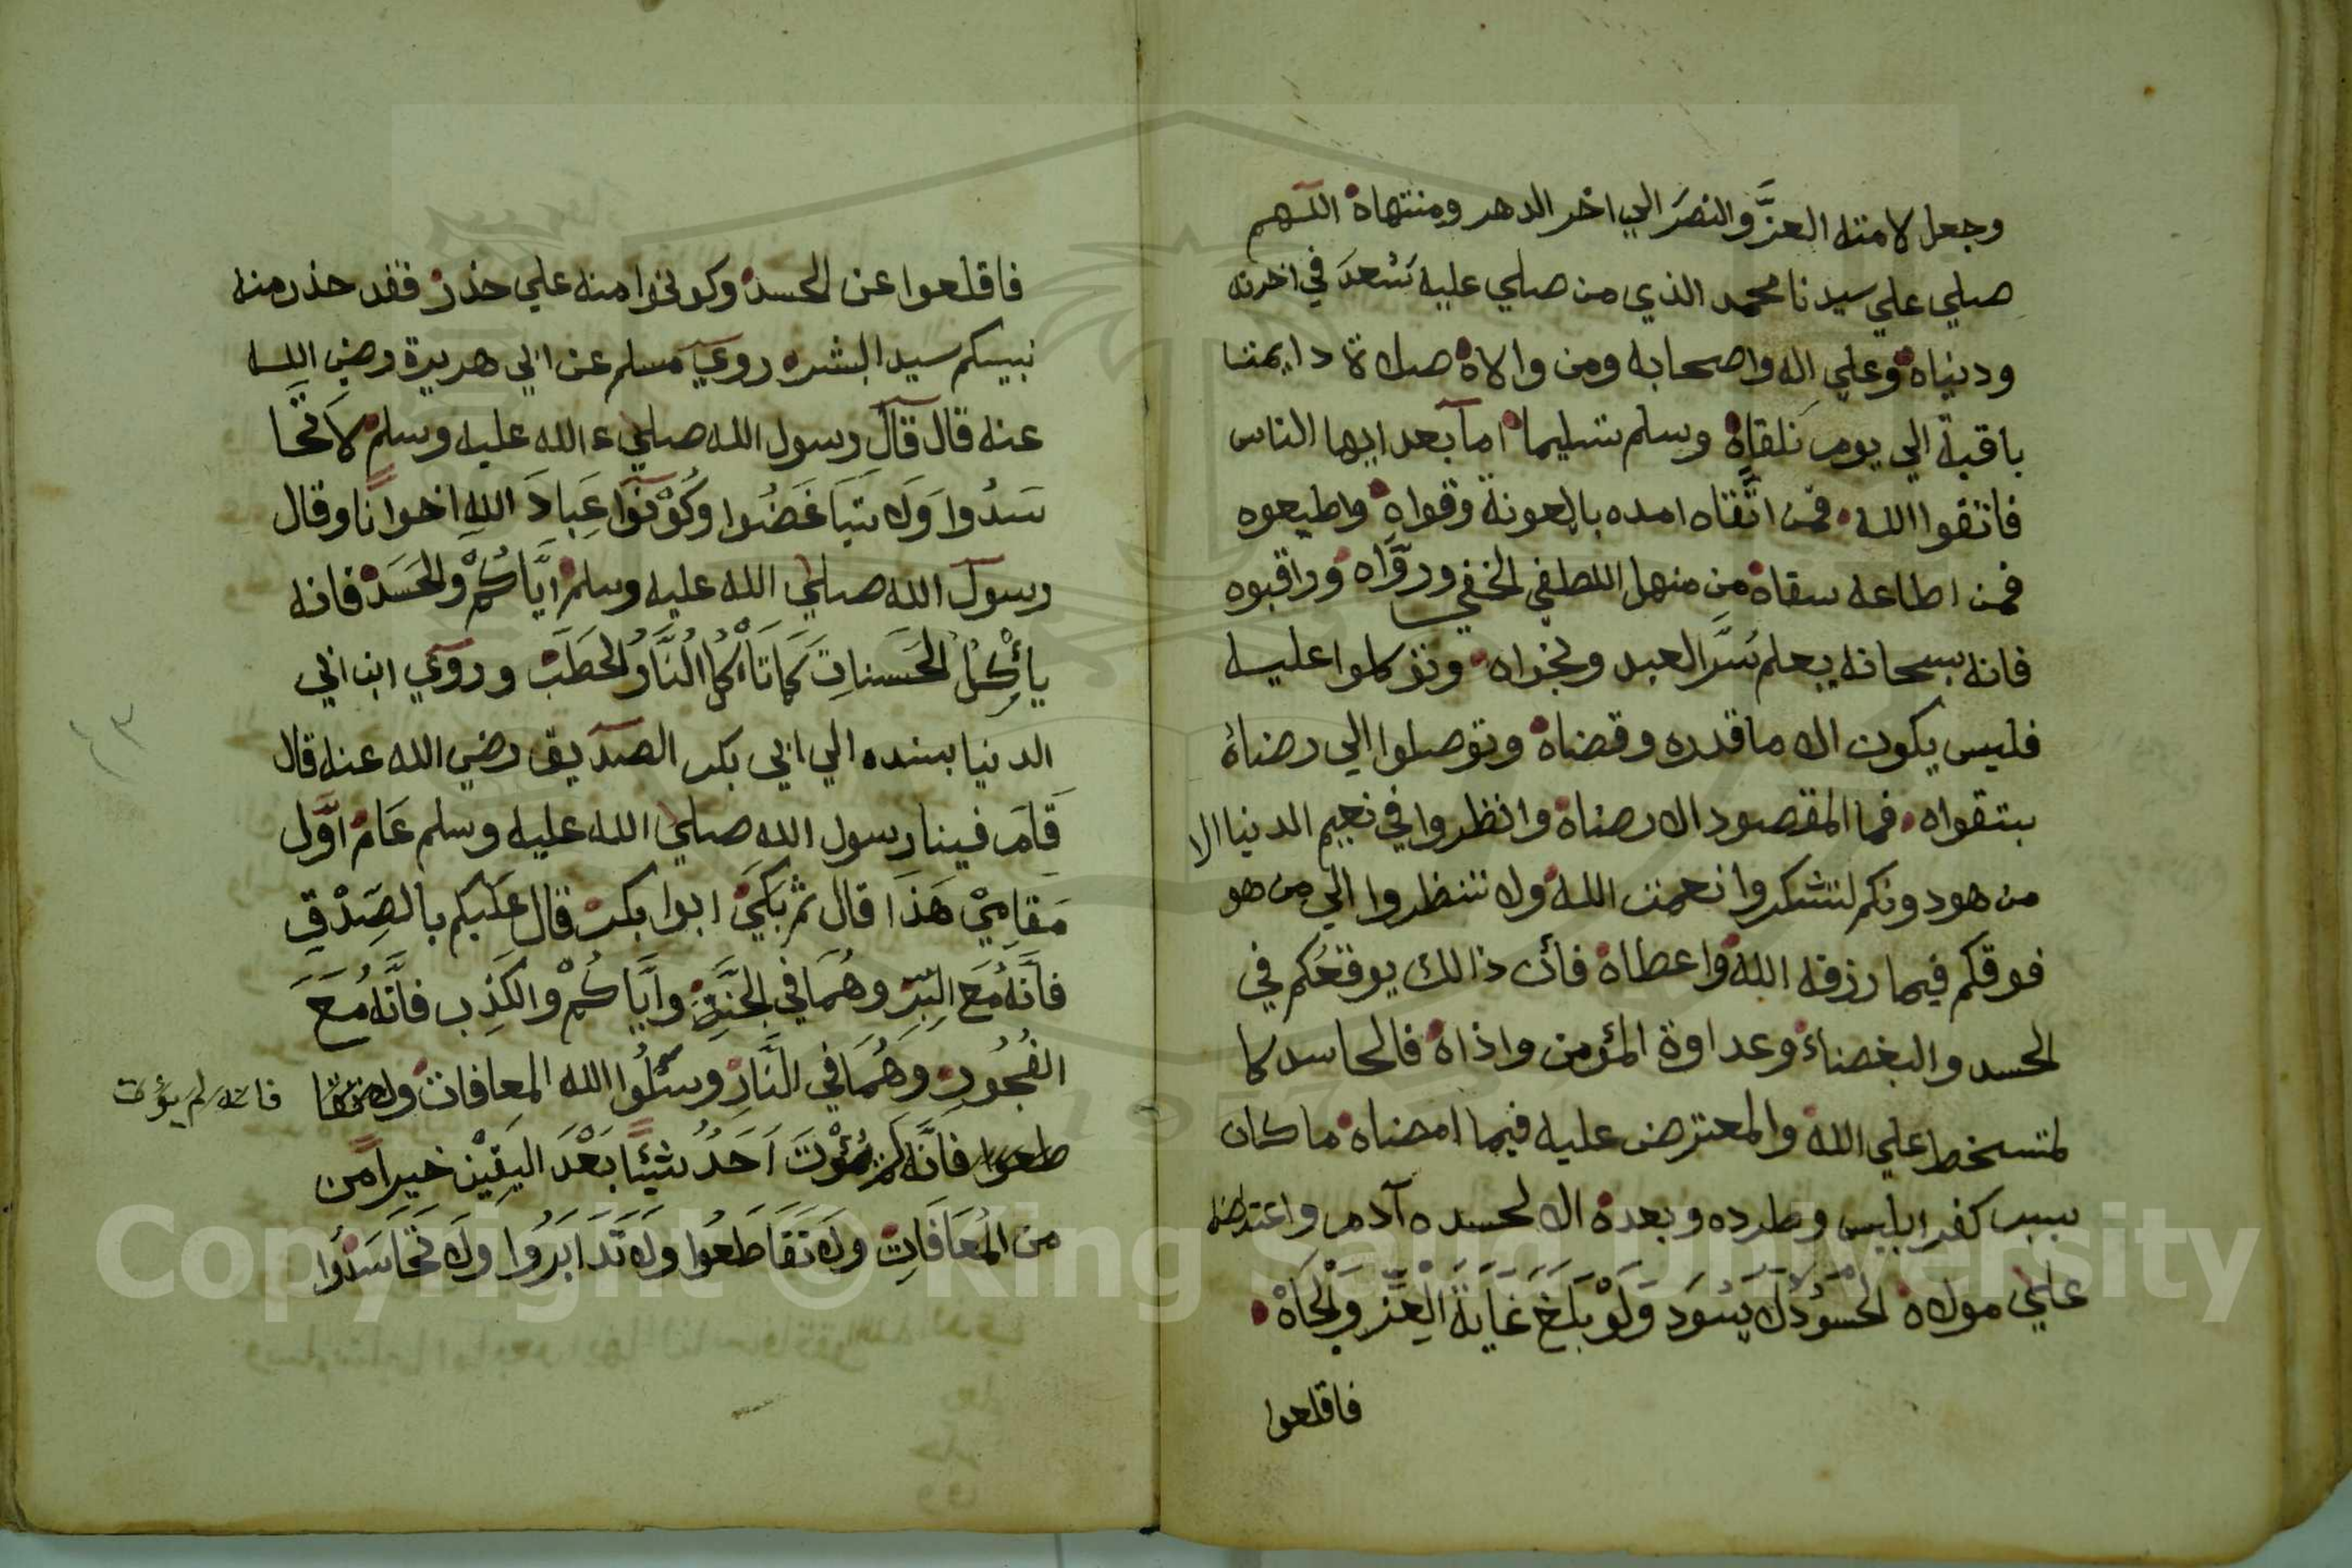 وجعل لامته العزَّ والنصرَ الي اخر الدهر ومنتهاه اللهم
صلي علي سيدنا محمد الذي من صلي عليه سُعدَ في اخرته
ودنياه وعلي اله واصحابه ومن والاه صلاة دايمتا
باقية الي يوم نلقاه وسلم تسليما اما بعد ايها الناس
فاتقوا الله فمن اتَّقاه امده بالعونة وقواه واطيعوه
فمن اطاعه سقاه من منهل اللطفي الخفي وروَّاه وراقبوه
فانه سبحانه يعلم سَّر العبد ونجواه وتوكلوا عليه
فليس يكون الا ما قدره وقضاه وتوصلوا الي رضاه
بتقواه فما المقصود الا رضاه وانظروا في نعيم الدنيا الا
من هو دونكم لتشكروا نعمت الله ولا تنظروا الي من هو
فوقكم فيما رزقه الله واعطاه فأن ذالك يوقعكم في
الحسد والبغضاء وعداوة المؤمن واذاه فالحاسد كا
لمتسخط علي الله والمعترض عليه فيما امضاه ما كان
سبب كفر ابليس وطرده وبعده الا لحسده آدم واعتراضه
علي مولاه الحَسُودُ لا يَسُود وَلَوْ بَلَغَ غَايَةَ الْعِزِّ وَلْجَاهْ
فاقلعوا
فاقلعوا عن الحسد وكونوا منه علي حذر فقد حذر منه
نبيكم سيد البشر روي مسلم عن ابي هريرة رضي الله
عنه قال قال رسول الله صلي الله عليه وسلم لا تَحَا
سَدُوا وَلا تَبَاغَضُوا وَكُوْنُوَا عِبَادَ اللهِ اخوانًا وقال
رسول الله صلي الله عليه وسلم ايَّاكُمْ والحَسَدْ فانه
يأكُلُ الحَسَناتِ كَمَا تَأْكُلُ النَّارُ الحَطَبَ وروي ابن ابي
الدنيا بسنده الي ابي بكر الصديق رضي الله عنه قال
قَامَ فينا رسول الله صلي الله عليه وسلم عَامْ اوَّل
مَقَامِيْ هَذَا قال ثم بَكَيَ ابوا بكر قال عَلَيكم بالصِّدْقِ
فأنَّهُ مَعَ البِّرِ وهُمَا في الجَنَّةِ وايَّاكُمْ والكَذِب فانَّهُ مَعَ
الفُجُورِ وَهُمَا في النَّارِ وسئلُوا الله المعافات ولا تقا
طعوا فانَّه لم يُؤْتَ اَحَدُ شيئًا بَعْدَ اليَقِيْن خيرا من
من المُعَافَاتِ ولا تَقَاطَعُوا ولا تَدَابَرُوا ولا تَحَاسَدُوا
فانه لم يؤت
٤٣
Copyright © King Saud University
1957